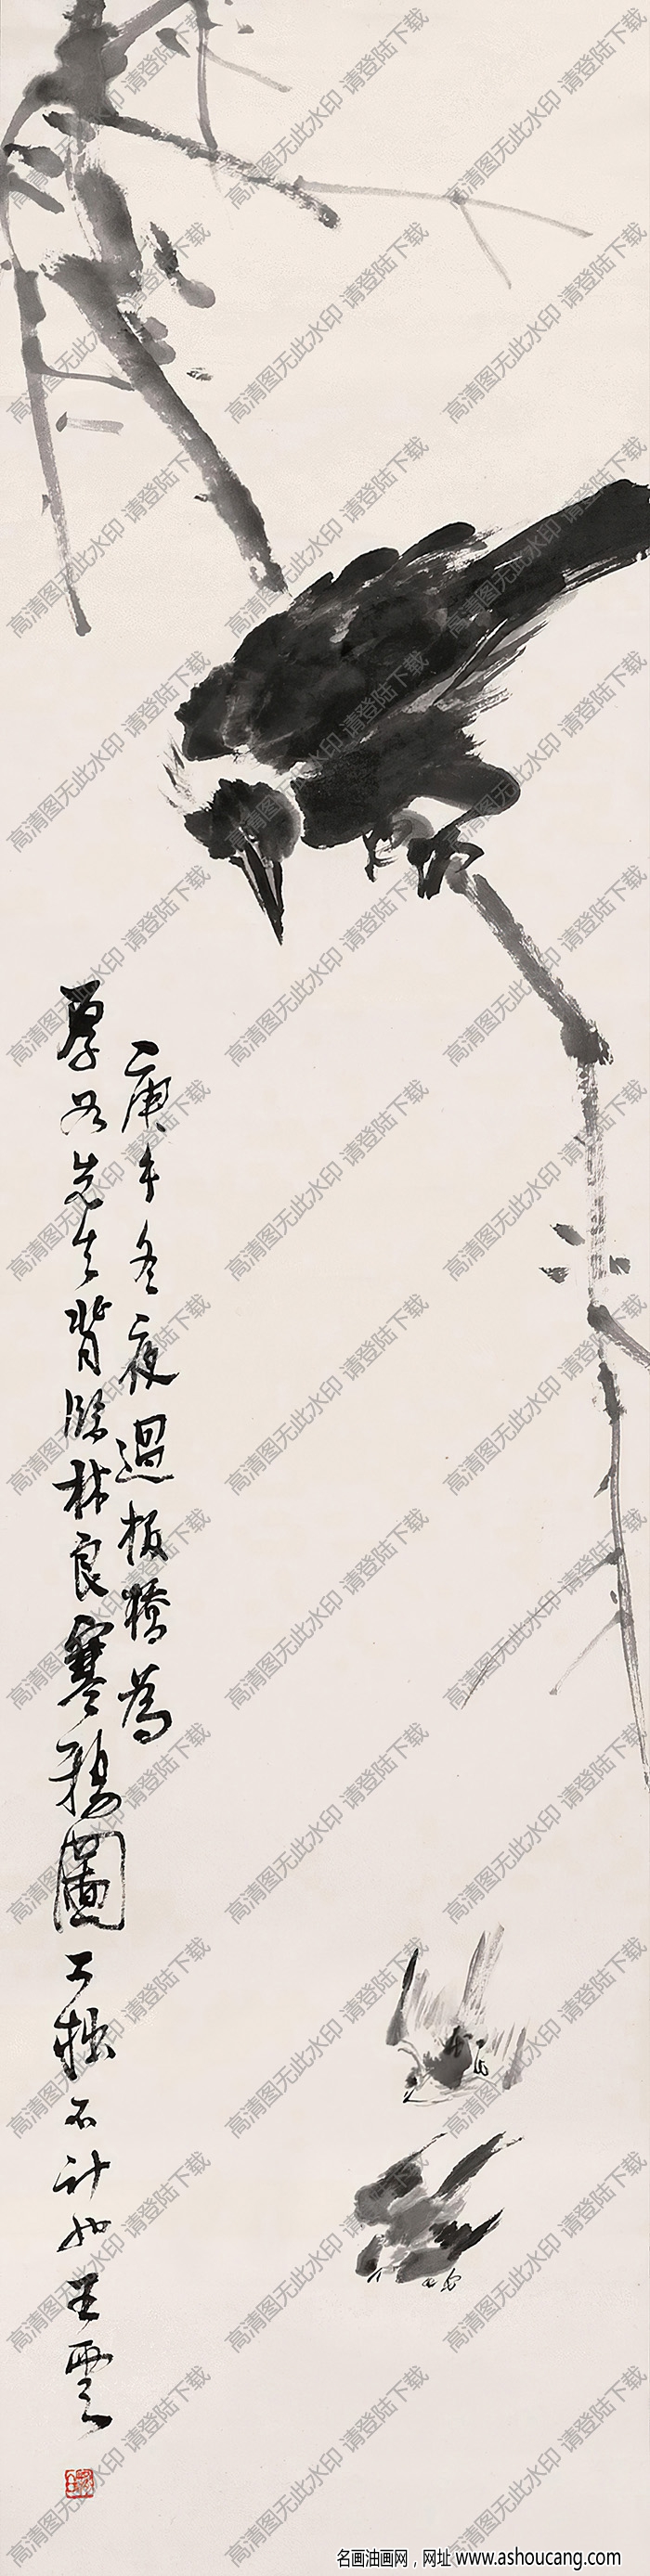 庚午冬夜過板橋為
厚若先生背臨林良寒鴉圖工拙不計也王雲
名画油画网，网址 www.ashoucang.com
高清图无此水印 请登陆下载